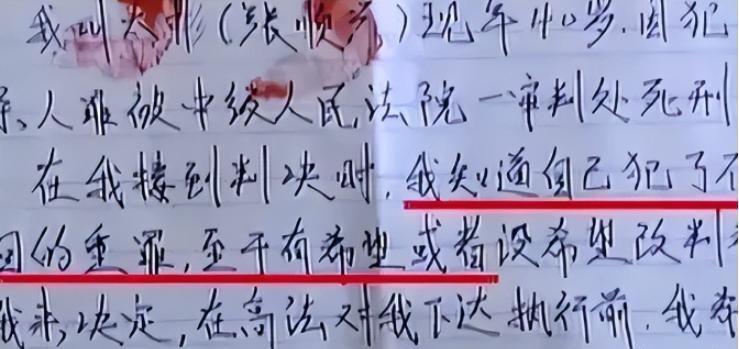 我叫大彬(张顺兴)现年40岁.因犯
人雅被中级人民法院一审判处死刑
在我接到判决时,我知道自己犯了不
的重罪,至于有希望或者没希望改判
我来决定,在高法对我下达执行前,我希